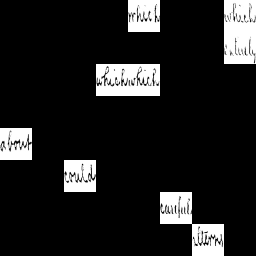 which which
entirely
which which
about
could
careful